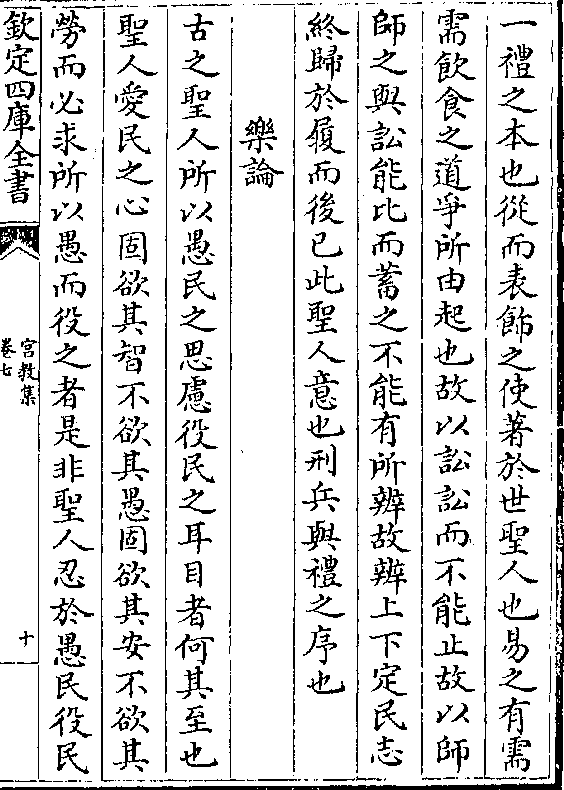 一禮之本也從而表飾之使著於世聖人也易之有需
需飲食之道爭所由起也故以訟訟而不能止故以師
師之與訟能比而蓄之不能有所辨故辨上下定民志
終歸於履而後已此聖人意也刑兵與禮之序也
樂論
古之聖人所以愚民之思慮役民之耳目者何其至也
聖人愛民之心固欲其智不欲其愚固欲其安不欲其
勞而必求所以愚而役之者是非聖人忍於愚民役民
欽定四庫全書
宮教集
卷七
十